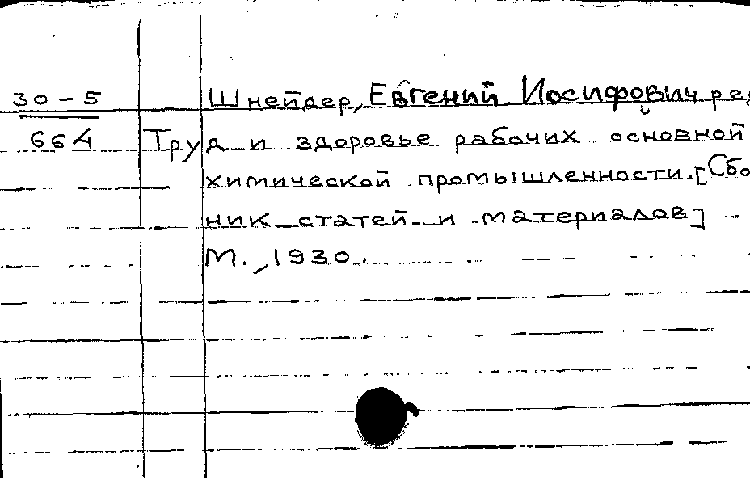 30-5 Шнейдер, Евгений Иосифович ред
664 Труд и здоровье рабочих основной
химической промышленности. [Сбо
ник статей и материалов]
М., 1930.